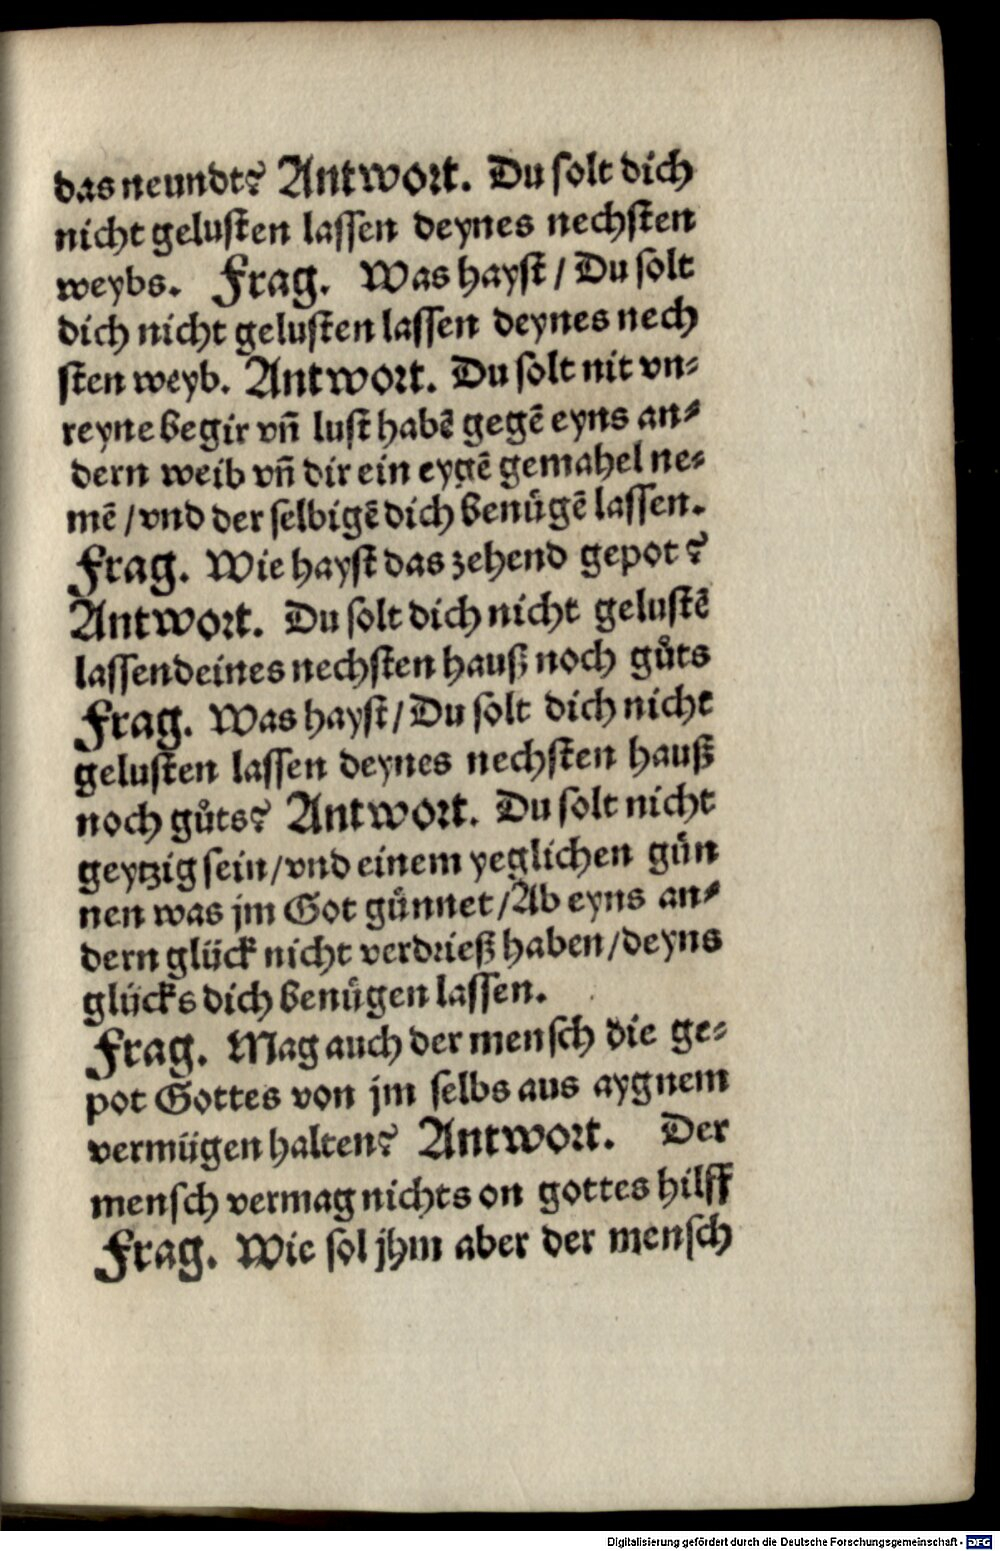 das neundt? Antwort. Du solt dich
nicht gelusten lassen deynes nechsten
weybs. Frag. Was hayst / Du solt
dich nicht gelusten lassen deynes nech
sten weyb. Antwort. Du solt nit vn⸗
reyne begir vñ lust habẽ gegẽ eyns an⸗
dern weib vñ dir ein eygẽ gemahel ne⸗
mẽ / vnd der selbigẽ dich benuͤgẽ lassen.
Frag. Wie hayst das zehend gepot?
Antwort. Du solt dich nicht gelustẽ
lassen deines nechsten hauß noch guͦts
Frag. Was hayst / Du solt dich nicht
gelusten lassen deynes nechsten hauß
noch guͦts? Antwort. Du solt nicht
geytzig sein / vnd einem yeglichen guͤn
nen was jm Got guͤnnet / Ab eyns an⸗
dern glück nicht verdrieß haben / deyns
glücks dich benuͤgen lassen.
Frag. Mag auch der mensch die ge⸗
pot Gottes von jm selbs aus aygnem
vermügen halten? Antwort. Der
mensch vermag nichts on gottes hilff
Frag. Wie sol jhm aber der mensch
Digitalisierung gefördert durch die Deutsche Forschungsgemeinschaft - DFG